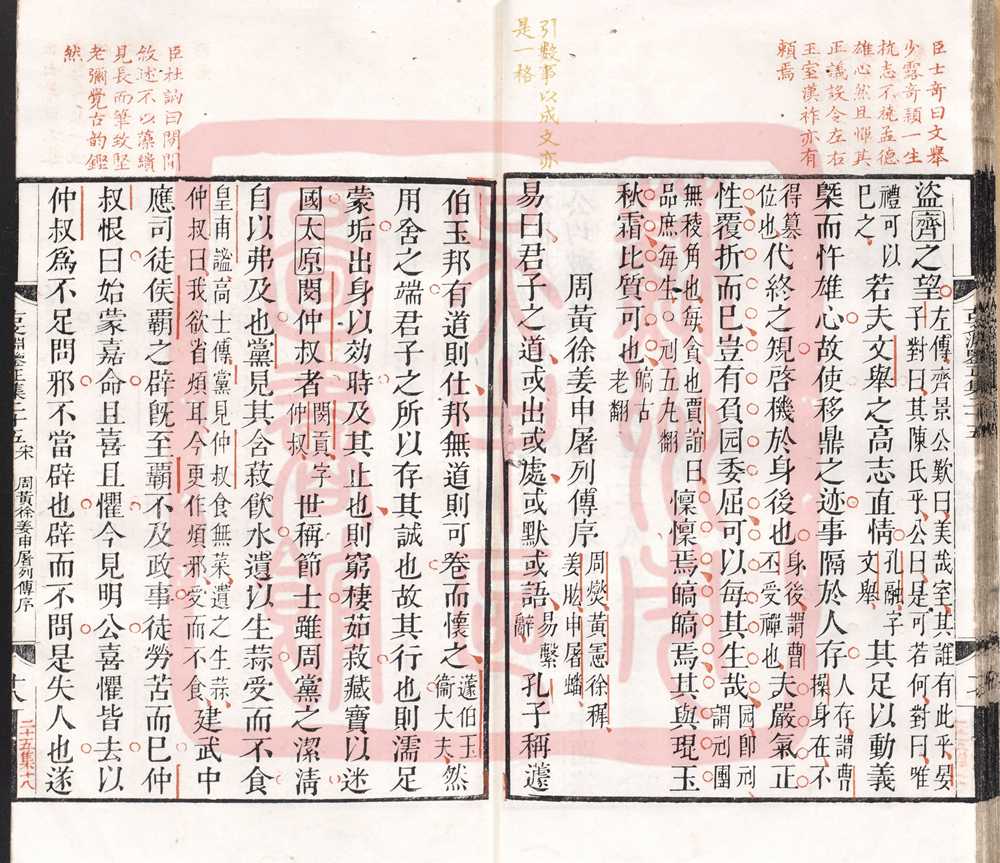 臣士奇曰文舉
少露奇穎一生
抗志不撓孟德
雄心然且憚其
正議設令左右
王室漢祚亦有
賴焉
盜齊之望左傳齊景公歎曰美哉室其誰有此乎晏子對曰其陳氏乎公曰是可若何對曰唯
禮可以巳之若夫文舉之高志直情孔融字文舉其足以動義
槩而忤雄心故使移鼎之迹事隔於人存人存謂曹操身在不
得篡位也代終之規啓機於身後也身後謂曹丕受禪也夫嚴氣正
性覆折而巳豈有員园委屈可以每其生哉园即刓謂刓團
無稜角也每貪也賈誼曰品庶每生○刓五丸翻懍懍焉皜皜焉其與琨玉
秋霜比質可也皜古老翻
周黃徐姜申屠列傳序周燮黃憲徐穉姜肱申屠蟠
易曰君子之道或出或處或默或語易繫辭孔子稱蘧
引數事以成文亦
是一格
伯玉邦有道則仕邦無道則可卷而懷之蘧伯玉衞大夫然
用舍之端君子之所以存其誠也故其行也則濡足
蒙垢出身以効時及其止也則窮棲茹菽藏寶以迷
國太原閔仲叔者閔貢字仲叔世稱節士雖周黨之潔清
自以弗及也黨見其含菽飮水遺以生蒜受而不食
皇甫謐高士傳黨見仲叔食無菜遺之生蒜仲叔曰我欲省煩耳今更作煩邪受而不食建武中
應司徒侯霸之辟旣至霸不及政事徒勞苦而巳仲
叔恨曰始蒙嘉命且喜且懼今見明公喜懼皆去以
仲叔爲不足問邪不當辟也辟而不問是失人也遂
臣杜訥曰閒閒
敘述不以藻繢
見長而筆致堅
老彌覺古韵鏗
然
古文淵鑒正集二十五 宋 周黃徐姜申屠列傳序 十八
二十五集十八